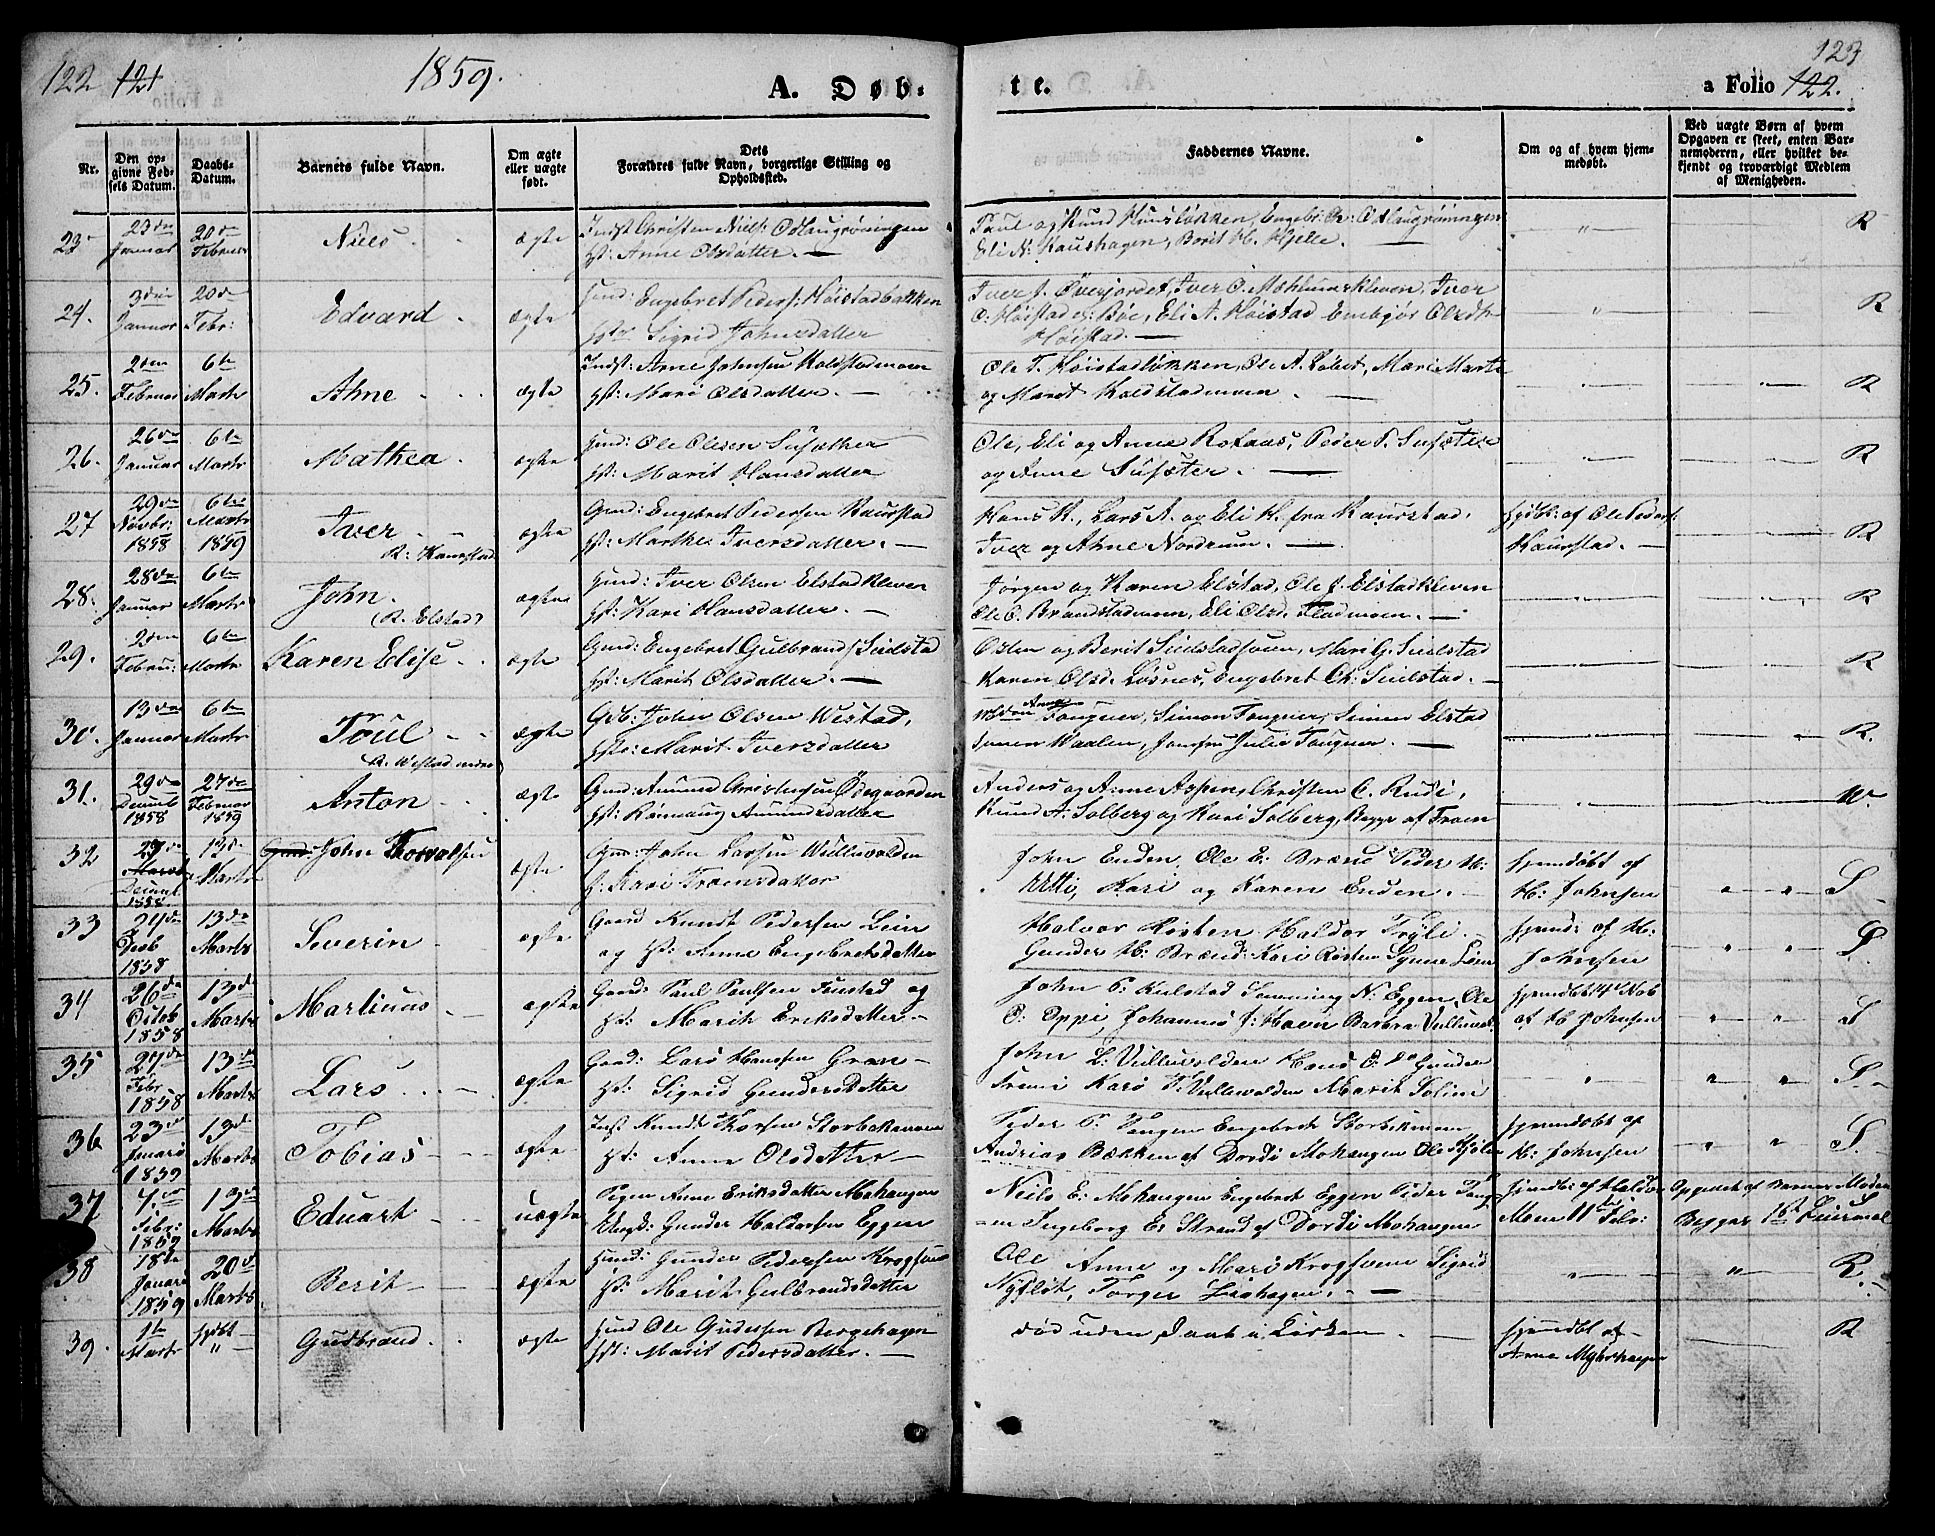 122 121 1859.
A. Døb-
te.
123
a Folio 122.
Nr.
Den op-
givne Fød-
sels Datum.
Daabs-
Datum.
Barnets fulde Navn.
Om ægte
eller uægte
født.
Dets
Forældres fulde Navn, borgerlige Stilling og
Opholdssted.
Faddernes Navne.
Om og af hvem hjem-
medøbt.
Ved uægte Børn af hvem
Opgaven er skeet, enten Bar-
nemoderen, eller hvilket be-
kjendt og troværdigt Medlem
af Menigheden.
23 23de Januar 20de Februar Niels ægte Indst Christen Niels: Odlaugrøningen
Hst: Anne Olsdatter. —
Paul og Knud Kunsløkken, Engebr: Ch: Odlaugrøningen
Eli N: Kaushagen, Borit H. Hjelle. — " — R
24. 3die Januar 20de Febr: Edvard ægte Huusd: Engebret Peders: Høistadbakken
Hst Sigrid Johnsdatter
Iver J. Øverjordet, Iver O. Mæhlumskleven, Iver
O. Høistad og Bøe, Eli A. Høistad Embjør Olsdtr
Høistad. — " — R
25. 2den Februar 6te Marts Ahne ægte Indst: Arne Johnsen Koldstadmoen
Hst: Mari Olsdatter. —
Ole T. Høistadløkken, Ole A. Løbet, Mari Marte
og Maret Koldstadmoen. — R
26. 26de Januar 6te Marts Mathea ægte Huusd: Ole Olesen Susæther
Hst: Marit Hansdatter
Ole, Eli og Anne Rofaas, Peder P. Susæter
og Anne Susæter. — R
27 29de Novbr: 1858 6te Marts 1859 Iver ægte Gmd: Engebret Pedersen Kaurstad
R: Kaurstad Hst: Marthe Iversdatter. —
Hans K., Lars A. og Eli H. fra Kaurstad, hjdbt: af Ole Peders:
Iver og Ahne Nordrum. — Kaurstad. — R
28. 28de Januar 6te Marts John. ægte Huusd: Iver Olsen Elstadkleven
(R. Elstad) Hst: Kari Hansdatter. —
Jørgen og Karen Elstad, Ole J. Elstadkleven
Ole O. Brandstadmoen, Eli Olsd. Fladmoen. — R
29. 2den Febru: 6te Marts Karen Elise ægte Gmd: Engebret Gulbrands Sindstad
Hst: Marit Olsdatter. —
Osten og Berit Sindstadsveen, Mari G. Sindstad
Karen Olsd. Løsnes, Engebret Ch: Sindstad. — R
30. 13de Januar 6te Marts Poul ægte Gbr: John Olsen Westad,
R. Westad nedre Hst: Marit Iversdatter
Mdm Anne Fougner, Simon Fougner, Simen Elstad
Simen Waalen, Jomfru Julie Fougner. — R.
31. 29de Decemb 1858 27de Februar 1859 Anton ægte Gmd: Amund Christensen Ødegaarden
Hst: Rønnaug Amundsdatter
Anders og Anne Aspen, Christen C. Rudi,
Knud A. Solberg og Kari Solberg, Begge af Froen W.
32 Decemb 1858 13de Marts John Thorvalsen ægte Gmd: John Larsen Wullevolden
H: Kari Framsdatter
John Enden, Ole E: Brænd Peder H: hjemdøbt af
Utti, Kari og Karen Enden. — H: Johnsen " " S
33 1858 13de Marts Severin ægte Gaard Knudt Pedersen Lein
og Hst: Anne Engebretsdatter
Halvor Kosten Haldor Tryli. — hjemd: af H:
Gunder H: Brænd: Kari Kosten Synne Lien Johnsen " " S.
34 26de Octob 1858 13de Marts Martinus ægte Gaard: Paul Paulsen Faustad og
Hst: Marit Eriksdatter —
John P: Kulstad Semming N: Eggen, Ole hjemdbt 14de Nob
P: Oppi, Johannes J: Haver Barbra Vullevol: af H Johnsen " " S
35 27de Febr 1858 13de Marts Lars ægte Gaard: Lars Hansen Gran —
Hst: Sigrid Gundersdatter
John L: Vullevolden Hans Gunder
Kari Vullevolden Marit Solime " " S.
36 23de Januari 1859 13de Marts Tobias ægte Inst Knudt Thorsen Storbekmoen
Hst: Anne Olsdatter —
Peder P. Haugen Engebret Storbekmoen hjemdøbt af
Andrias Bækken af Dordi Mohaugen Ole Kjølen H: Johnsen " " S.
37 7de Febr: 1859 13de Marts Eduart uægte Pigen Anne Eriksdatter Mohaugen
Ungk: Gunder Haldorsen Eggen
Niels E: Mohaugen Engebret Eggen Peder Haug- hjemdbt: af Haldor Opgivet af Barnets Moder
en Ingeborg E: Strand af Dordi Mohaugen Moen 11te Febr: Begges 1ste Leiermaal
38 18de Januari 1859 20de Marts Berit ægte Huusd: Gunder Pedersen Krogsveen
Hst: Marit Gulbrandsdatter
Ole Anne og Mari Krogsveen Sigrid
Nysløt, Torger Liehagen. — " R.
39. 1te Marts hjdbt " Gudbrand ægte Huusd Ole Gudersen Bergehagen
Hst: Marit Pedersdatter. —
død uden Daab i Kirken. — hjemdbt af
Anne Myhrhagen R